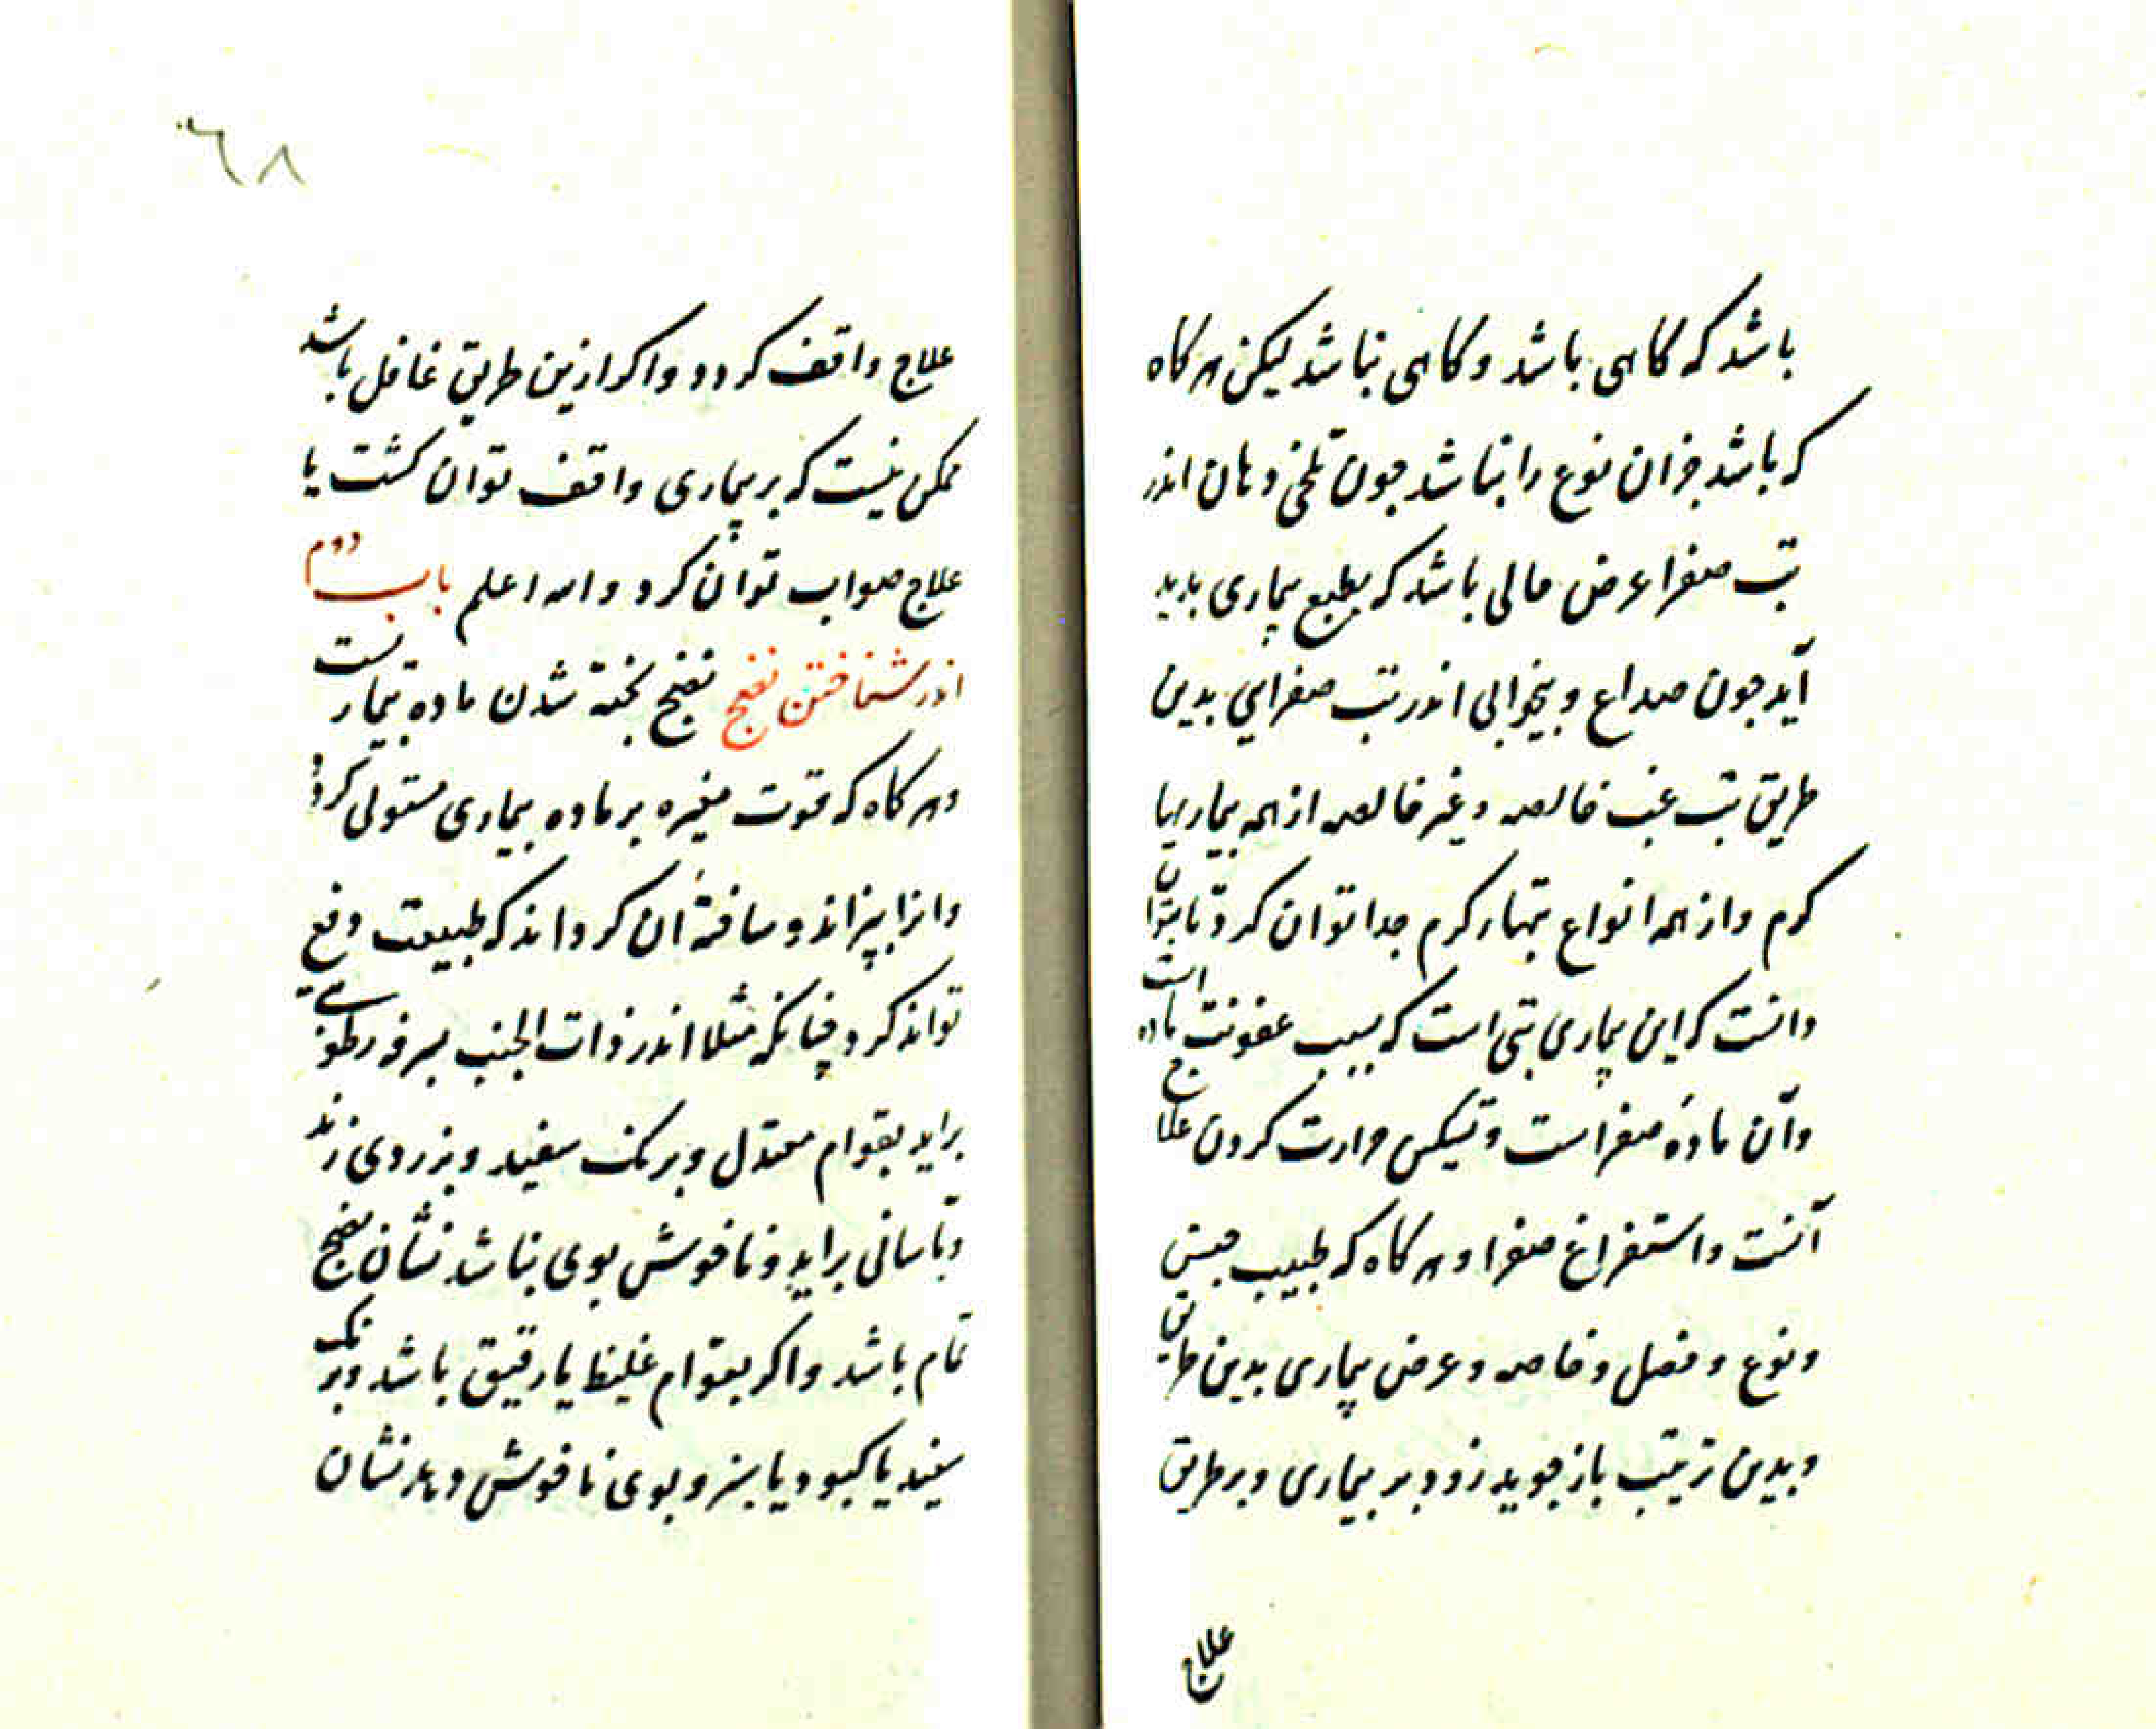 باشد که کاهی باشد و کاهی نباشد لیکن هر کاه
که باشد جز ان نوع را نباشد جون تلخی دهان اندر
تب صفرا عرض حالی باشد که بطبع بیماری بدید
آید جون صداع و بیخوابی اندر تب صفرایی بدین
طریق تب غب خالصه و غیر خالصه از همه بیماریها
کرم و از همه انواع تبهاء کرم جدا توان کرد تا بتوان
دانست که این بیماری تبی است که بسبب عفونت ماده است
وآن مادهٔ صفراست و تسکین حرارت کردن علاج
آنست و استفراغ صفرا و هر کاه که طبیب جنس
و نوع و فصل و خاصه و عرض بیماری بدین طریق
و بدین ترتیب باز جوید زود بر بیماری و بر طریق
علاج
٦٨
علاج واقف کردد و اکر ازین طریق غافل باشد
ممکن نیست که بر بیماری واقف توان کشت یا
علاج صواب توان کرد و الله اعلم باب دوم
اندر شناختن نضج نضج بخته شدن ماده بیماریست
و هر کاه که قوت مغیره بر ماده بیماری مستولی کردد
و انرا بپزاند و ساختهٔ ان کرداند که طبیعت دفع
تواند کرد چنانکه مثلا اندر ذات الجنب بسرفه رطوبتی
براید بقوام معتدل و برنک سفید و بزردی زند
و بآسانی براید و ناخوش بوی نباشد نشان نضج
تمام باشد و اکر بقوام غلیظ یا رقیق باشد و برنک
سفید یا کبود یا سبز و بوی ناخوش دهد نشان